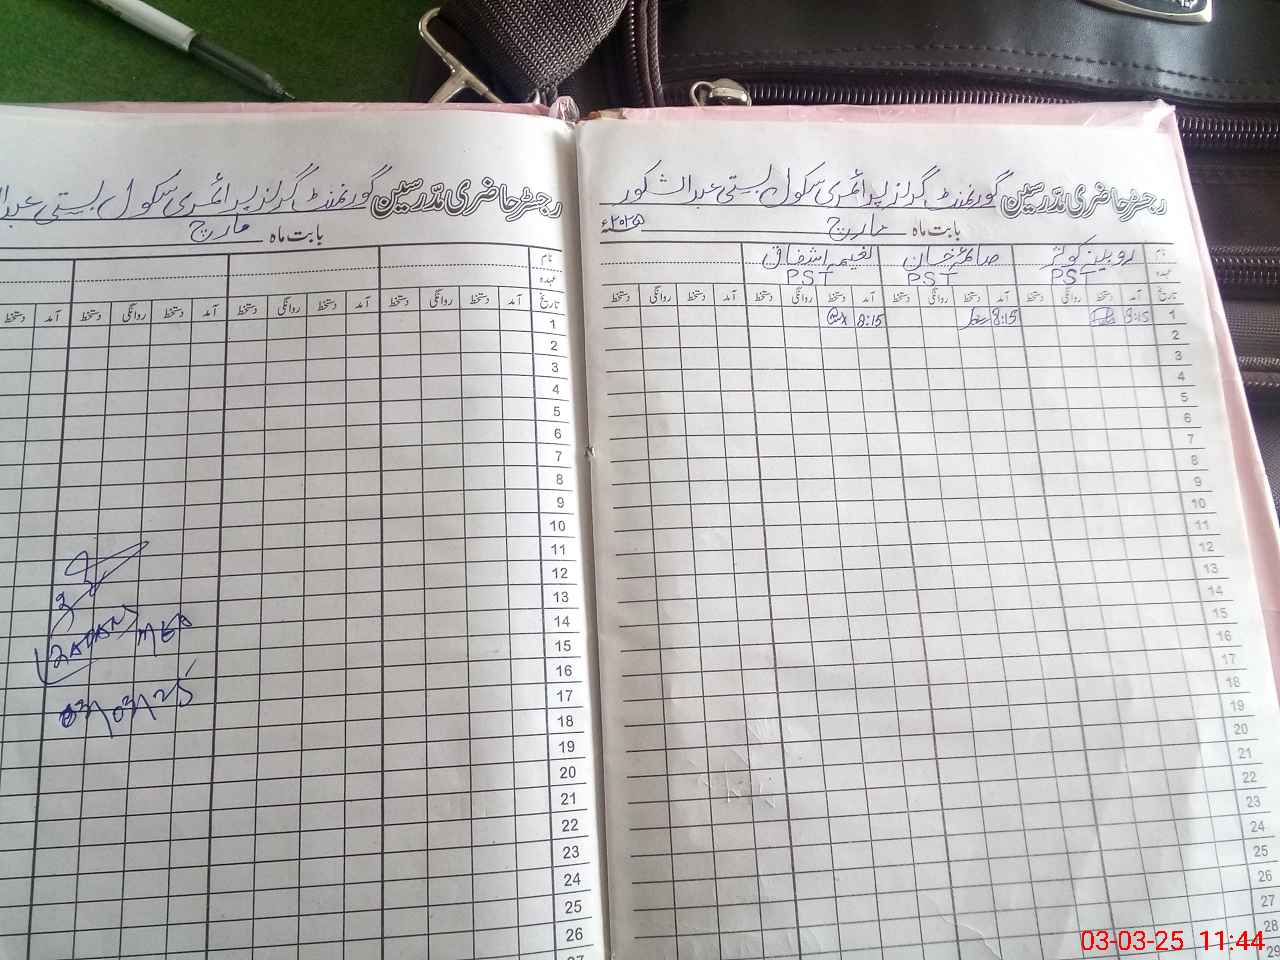 رجسٹر حاضری مدرسین گورنمنٹ گرلز پرائمری سکول بستی عبدالشکور
بابت ماہ مارچ ۲۰۲۵ء
نام روبینہ کوثر صائمہ خان نعیمہ اشفاق
عہدہ PST PST PST
تاریخ آمد دستخط روانگی دستخط آمد دستخط روانگی دستخط آمد دستخط روانگی دستخط آمد دستخط روانگی دستخط
1 8:15 8:15 8:15
2
3
4
5
6
7
8
9
10
11
12
13
14
15
16
17
18
19
20
21
22
23
24
25
26
27
28
29
رجسٹر حاضری مدرسین گورنمنٹ گرلز پرائمری سکول بستی عبدا
بابت ماہ مارچ
نام
عہدہ
تاریخ آمد دستخط روانگی دستخط آمد دستخط روانگی دستخط آمد دستخط روانگی دستخط آمد دستخط
1
2
3
4
5
6
7
8
9
10
11
12
13
14
15
16
17
18
19
20
21
22
23
24
25
26
27
03/03/25
03-03-25 11:44